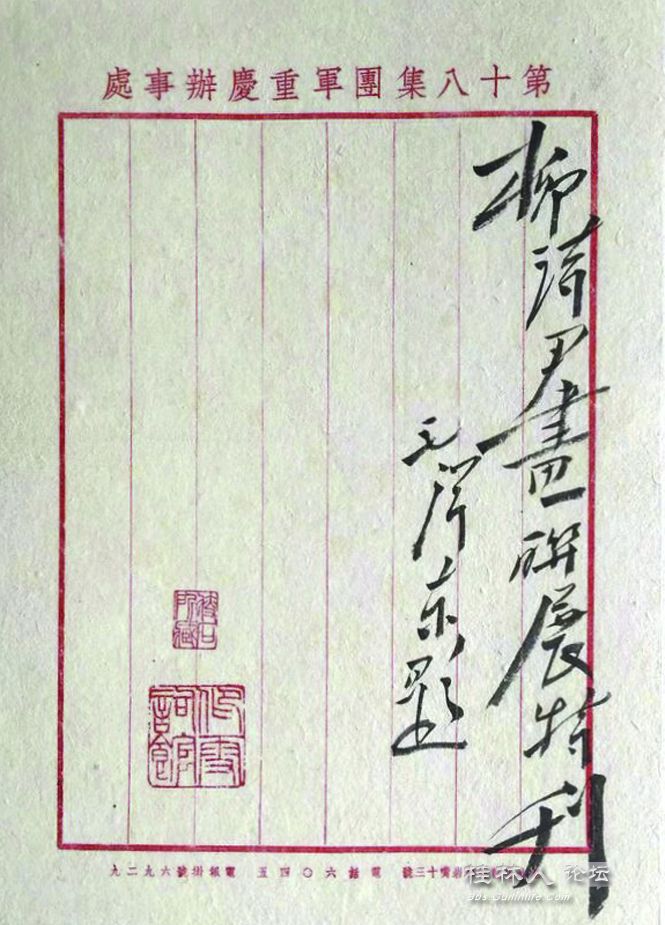 第十八集團軍重慶辦事處
柳詩尹畫聯展特刊
毛澤東題
十三號 電話六〇四五 電報掛號六九二九
桂林人论坛
bbs.Guilinlife.com